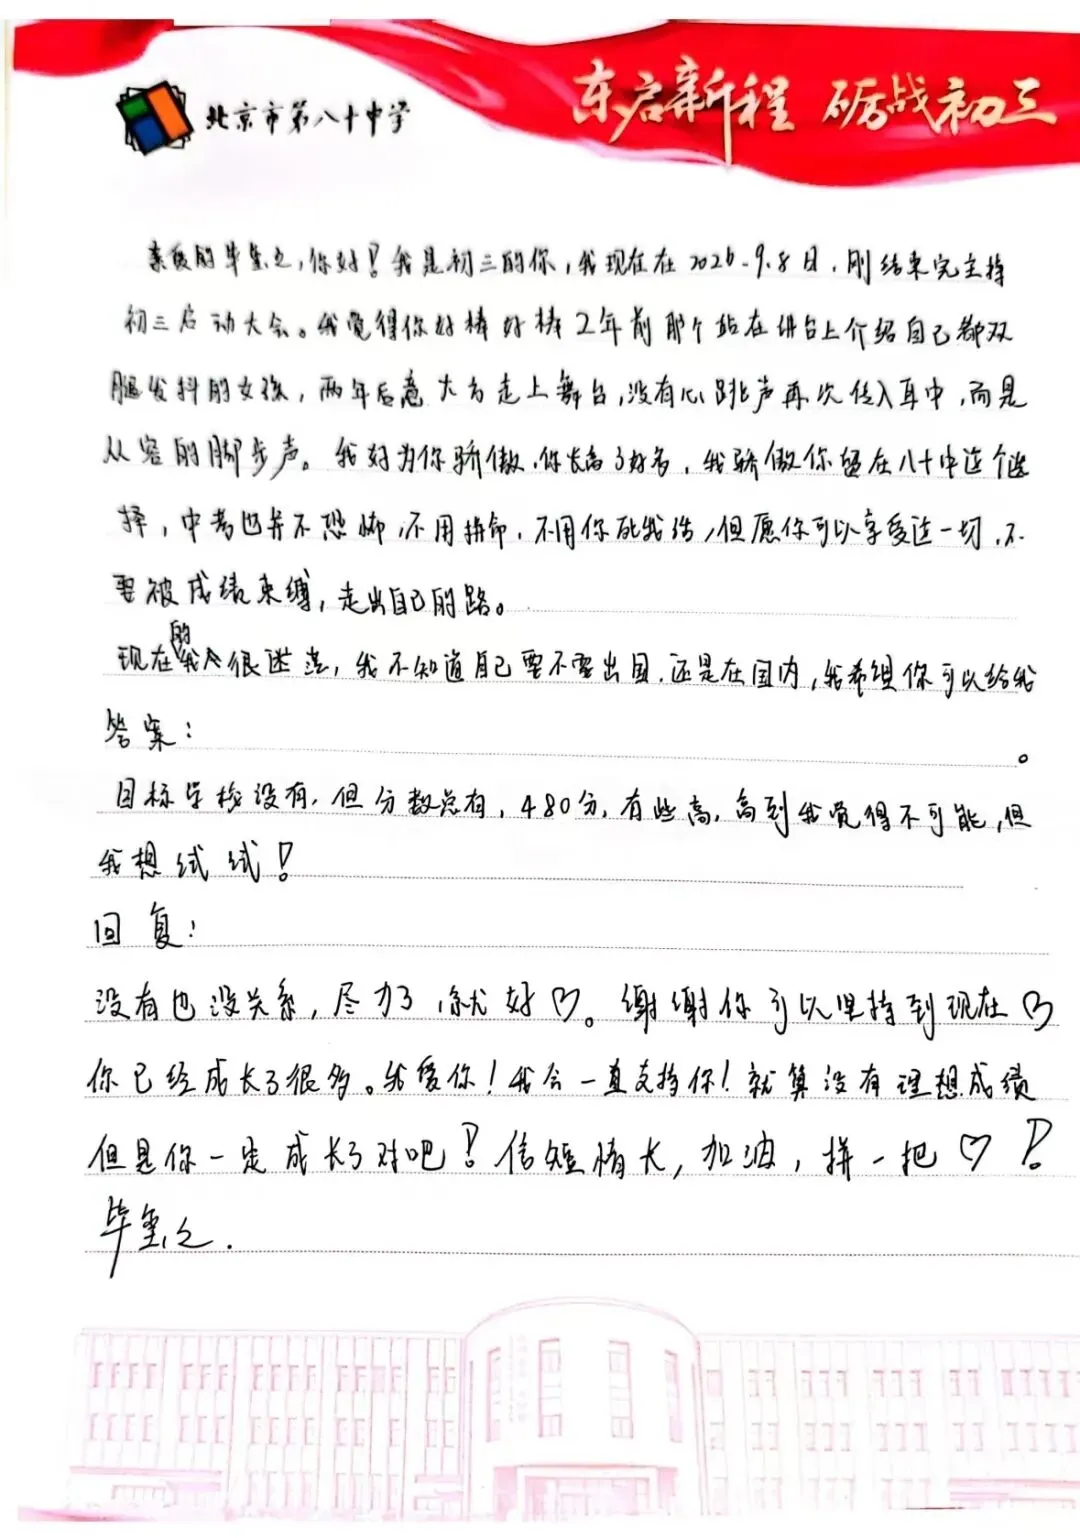 北京市第八十中学
东启新程 砺战初三
亲爱的毕玺之,你好!我是初三的你,我现在在2026.9.8日.刚结束完主持
初三启动大会。我觉得你好棒好棒2年前那个站在讲台上介绍自己都双
腿发抖的女孩,两年后意大方走上舞台,没有心跳声再次传入耳中,而是
从容的脚步声。我好为你骄傲.你长高了好多,我骄傲你留在八十中这个选
择,中考也并不恐怖,不用拼命.不用你死我活,但愿你可以享受这一切.不
要被成绩束缚,走出自己的路。
现在的我很迷茫,我不知道自己要不要出国.还是在国内,我希望你可以给我
答案: 。
目标学校没有.但分数总有,480分,有些高,高到我觉得不可能,但
我想试试!
回复:
没有也没关系,尽力了,就好♡。谢谢你可以坚持到现在♡
你已经成长了很多。我爱你!我会一直支持你!就算没有理想成绩
但是你一定成长了对吧!信短情长,加油,拼一把♡!
毕玺之.